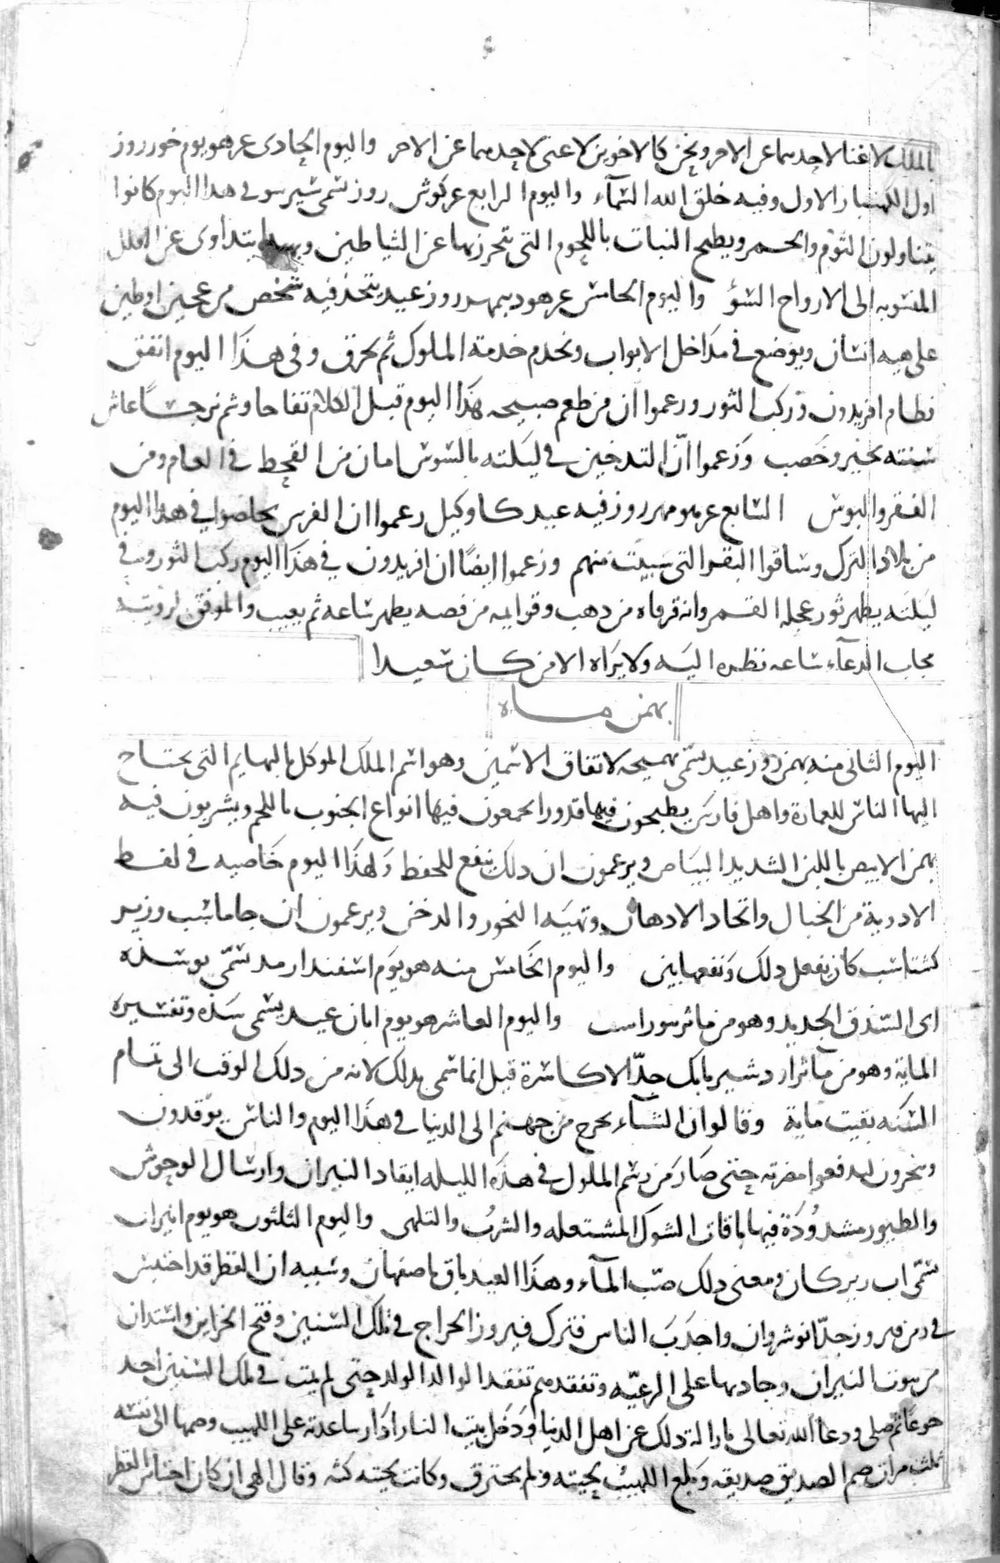 الملك لاغنا لاحدهما عن الاخر ونحن كالاخوين لاغنى لاحدهما عن الاخر واليوم الحادى عشر هو يوم خور روز
اول الكهنبار الاول وفيه خلق الله السماء واليوم الرابع عشر كوش روز تسمى سير سو فى هذا اليوم كانوا
يتناولون الثوم والخمر ويطبخ النبات باللحوم التى يتحرز بها عن الشياطين وبهذا يتداوى عن العلل
المنسوبه الى الارواح السوء واليوم الخامس عشر هو ديبمهر روز عيد يتخذ فيه شخص من عجين او طين
على هيه انسان ويوضع فى مداخل الابواب ويخدم خدمة الملوك ثم يحرق وفى هذا اليوم اتفق
فطام افريدون وركب الثور وزعموا ان من طعم صبيحه هذا اليوم قبل الكلام تفاحا وشم نرجسا عاش
سنته بخير وخصب وزعموا ان التدخين فى ليلته بالسوس امان من القحط فى العام ومن
الفقر والبوس السابع عشر هو مهر روز فيه عيد كاوكيل زعموا ان الفرس تخلصوا فى هذا اليوم
من بلاد الترك وساقوا البقر التى سبيت منهم وزعموا ايضا ان افريدون فى هذا اليوم ركب الثور وفى
ليلته يظهر ثور عجله القمر وانه قرناه من ذهب وقوايمه من فضه يظهر ساعه ثم يغيب والموفق لرويته
مجاب الدعاء ساعه نظره اليه ولا يراه الا من كان سعيدا
بهمن ماه
اليوم الثانى منه بهمن روز عيد يسمى بهمنجه لاتفاق الاسمين وهو اسم الملك الموكل بالبهايم التى يحتاج
اليها الناس للعمارة واهل فارس يطبخون فيها قدورا يجمعون فيها انواع الحبوب باللحم ويشربون فيه
بهمن الابيض باللبن الشديد البياض ويزعمون ان ذلك ينفع للحفظ ولهذا اليوم خاصيه فى لقط
الادوية من الجبال واتخاذ الادهان وتهيئه البخور والدخن ويزعمون ان جاماسب وزير
كشتاسب كان يفعل ذلك ونفعها بين واليوم الخامس منه هو يوم اسفندارمد تسمى بو سده
اى السذق الجديد وهو من ماثر بيوراسب واليوم العاشر هو يوم ابان عيد يسمى سده وتفسيره
الماية وهو من مآثر اردشير بابك جد الاكاسرة قيل انما سمى بذلك لانه من ذلك الوقت الى تمام
السنه بقيت ماية وقالوا ان الشتاء يخرج من جهنم الى الدنيا فى هذا اليوم والناس يوقدون
ويبخرون ليدفعوا مضرته حتى صار من رسم الملوك فى هذه الليله ايقاد النيران وارسال الوحوش
والطيور مشدودة فيها باقات الشوك المشتعله والشرب والتلهى واليوم الثلثون هو يوم انيران
تسمى اب ريزكان ومعنى ذلك صب المآء وهذا العيد باق باصفهان وسببه ان القطر قد احتبس
فى زمن فيروز جد انوشروان واجدب الناس فترك فيروز الخراج فى تلك السنين وفتح الخزاين واستدان
من بيوت النيران وجاد بها على الرعيه وتفقدهم تفقد الوالد الولد حتى لم يمت فى تلك السنين احد
جوعا ثم صلى ودعا الله تعالى بازالة ذلك عن اهل الدنيا ودخل بيت النار ادار ساعديه على اللهيب وضمها الى نفسه
ثلث مرات ضم الصديق صديقه وبلغ اللهيب لحيته ولم يحترق وكانت لحيته كثه وقال الهى ان كان احتباس القطر